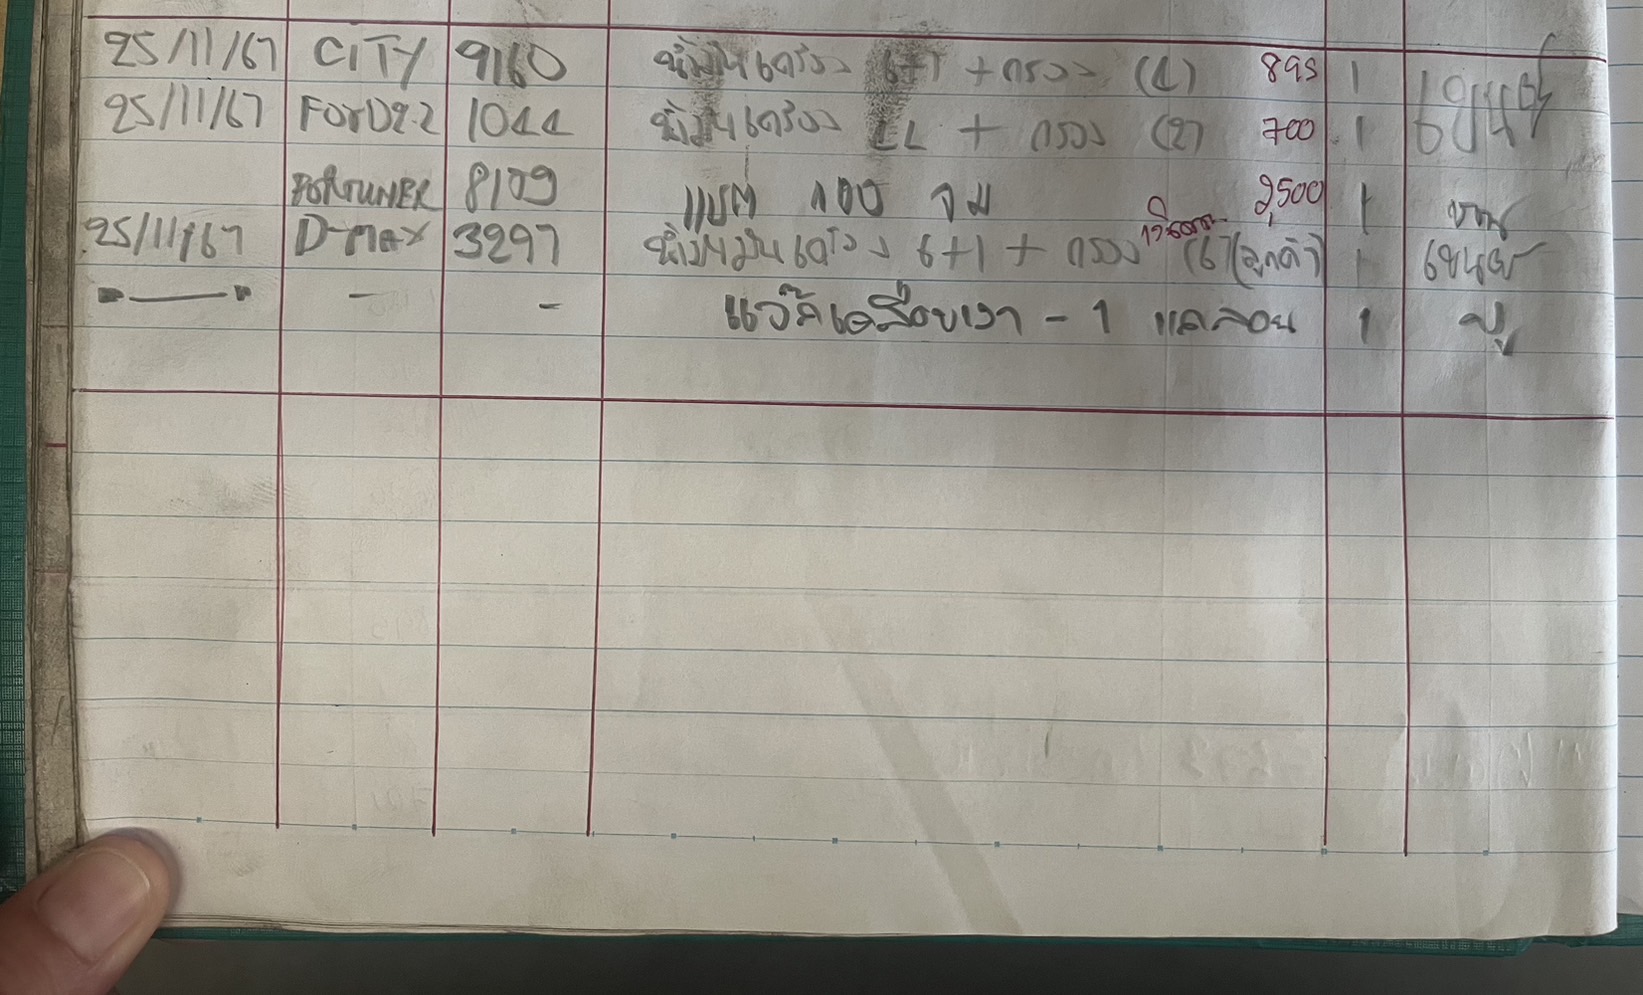 25/11/67 CITY 9160 น้ำมันเครื่อง 6+1 + กรอง (1) 895 1
25/11/67 FORD2.2 1044 น้ำมันเครื่อง LL + กรอง (2) 700 1
FORTUNER 8109 แบต 100 จม 2,500 1
25/11/67 D-max 3297 น้ำมันเครื่อง 6+1 + กรอง (6) (ลูกค้า) 1
— - - แว๊คเคลือบเงา - 1 แคลลอน 1